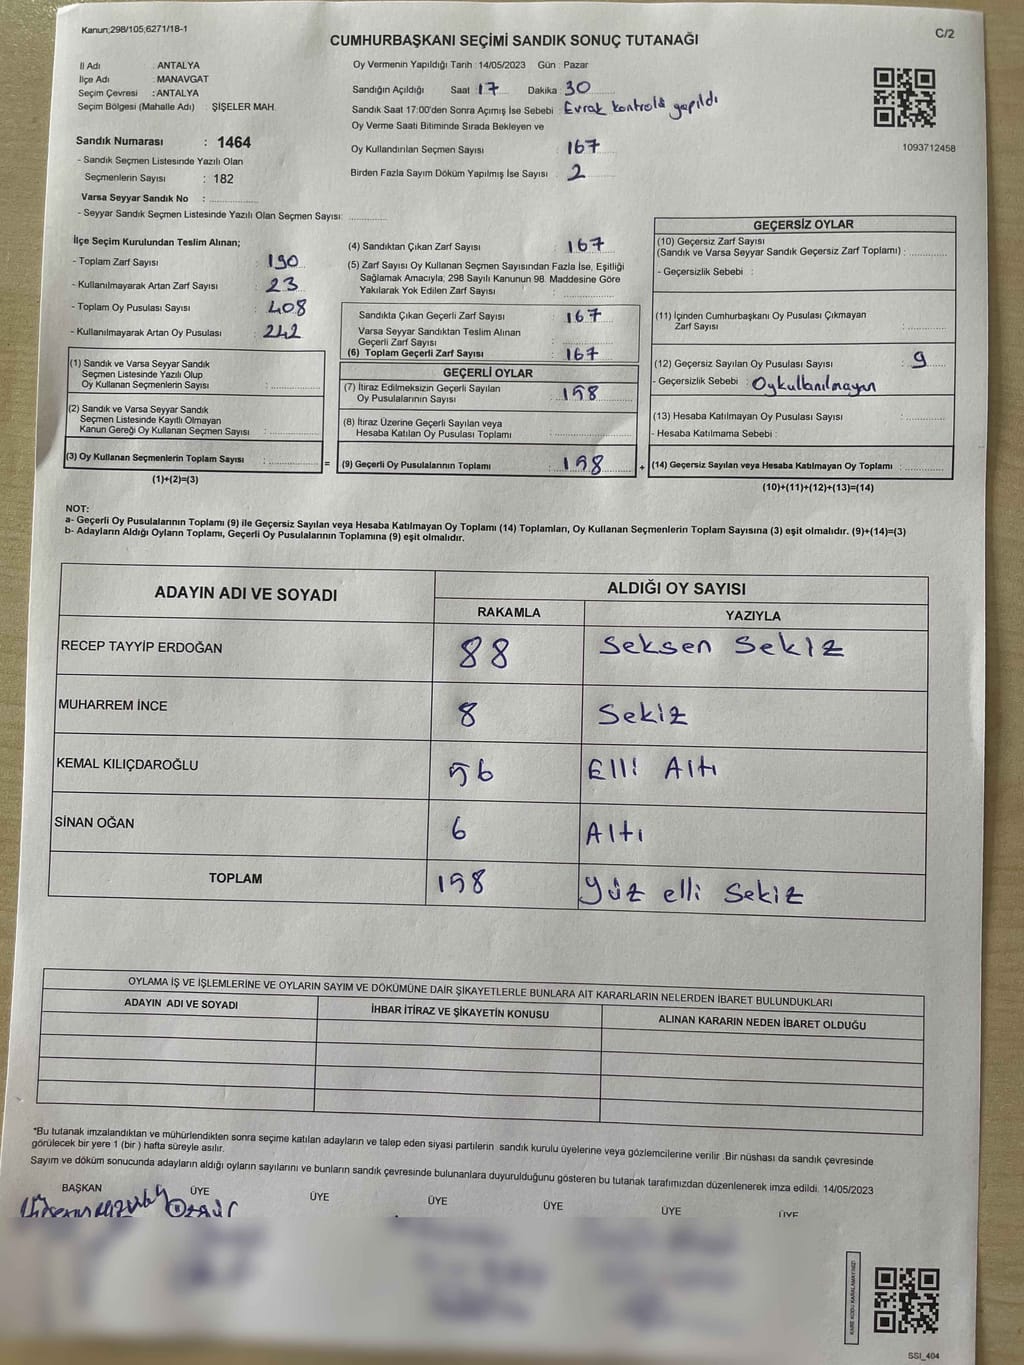 Kanun;298/105;6271/18-1
C/2
CUMHURBAŞKANI SEÇİMİ SANDIK SONUÇ TUTANAĞI
İl Adı : ANTALYA
İlçe Adı : MANAVGAT
Seçim Çevresi : ANTALYA
Seçim Bölgesi (Mahalle Adı) : ŞİŞELER MAH.
Sandık Numarası : 1464
- Sandık Seçmen Listesinde Yazılı Olan
Seçmenlerin Sayısı : 182
Varsa Seyyar Sandık No :
- Seyyar Sandık Seçmen Listesinde Yazılı Olan Seçmen Sayısı:
Oy Vermenin Yapıldığı Tarih : 14/05/2023 Gün : Pazar
Sandığın Açıldığı Saat 17 Dakika : 30
Sandık Saat 17:00'den Sonra Açımış İse Sebebi : Evrak kontrolü yapıldı
Oy Verme Saati Bitiminde Sırada Bekleyen ve
Oy Kullandırılan Seçmen Sayısı : 167
Birden Fazla Sayım Döküm Yapılmış İse Sayısı : 2
1093712458
İlçe Seçim Kurulundan Teslim Alınan;
- Toplam Zarf Sayısı : 190
- Kullanılmayarak Artan Zarf Sayısı : 23
- Toplam Oy Pusulası Sayısı : 408
- Kullanılmayarak Artan Oy Pusulası : 242
(1) Sandık ve Varsa Seyyar Sandık
Seçmen Listesinde Yazılı Olup
Oy Kullanan Seçmenlerin Sayısı :
(2) Sandık ve Varsa Seyyar Sandık
Seçmen Listesinde Kayıtlı Olmayan
Kanun Gereği Oy Kullanan Seçmen Sayısı :
(3) Oy Kullanan Seçmenlerin Toplam Sayısı :
(1)+(2)=(3)
(4) Sandıktan Çıkan Zarf Sayısı : 167
(5) Zarf Sayısı Oy Kullanan Seçmen Sayısından Fazla İse, Eşitliği
Sağlamak Amacıyla; 298 Sayılı Kanunun 98. Maddesine Göre
Yakılarak Yok Edilen Zarf Sayısı :
Sandıkta Çıkan Geçerli Zarf Sayısı : 167
Varsa Seyyar Sandıktan Teslim Alınan
Geçerli Zarf Sayısı :
(6) Toplam Geçerli Zarf Sayısı : 167
GEÇERLİ OYLAR
(7) İtiraz Edilmeksizin Geçerli Sayılan
Oy Pusulalarının Sayısı : 158
(8) İtiraz Üzerine Geçerli Sayılan veya
Hesaba Katılan Oy Pusulası Toplamı
= (9) Geçerli Oy Pusulalarının Toplamı : 158 +
GEÇERSİZ OYLAR
(10) Geçersiz Zarf Sayısı
(Sandık ve Varsa Seyyar Sandık Geçersiz Zarf Toplamı) :
- Geçersizlik Sebebi :
(11) İçinden Cumhurbaşkanı Oy Pusulası Çıkmayan
Zarf Sayısı :
(12) Geçersiz Sayılan Oy Pusulası Sayısı : 9
- Geçersizlik Sebebi : Oykullanılmayan
(13) Hesaba Katılmayan Oy Pusulası Sayısı :
- Hesaba Katılmama Sebebi :
(14) Geçersiz Sayılan veya Hesaba Katılmayan Oy Toplamı :
(10)+(11)+(12)+(13)=(14)
NOT:
a- Geçerli Oy Pusulalarının Toplamı (9) ile Geçersiz Sayılan veya Hesaba Katılmayan Oy Toplamı (14) Toplamları, Oy Kullanan Seçmenlerin Toplam Sayısına (3) eşit olmalıdır. (9)+(14)=(3)
b- Adayların Aldığı Oyların Toplamı, Geçerli Oy Pusulalarının Toplamına (9) eşit olmalıdır.
ADAYIN ADI VE SOYADI
ALDIĞI OY SAYISI
RAKAMLA YAZIYLA
RECEP TAYYİP ERDOĞAN 88 Seksen Sekiz
MUHARREM İNCE 8 Sekiz
KEMAL KILIÇDAROĞLU 56 Elli Altı
SİNAN OĞAN 6 Altı
TOPLAM 158 Yüz elli Sekiz
OYLAMA İŞ VE İŞLEMLERİNE VE OYLARIN SAYIM VE DÖKÜMÜNE DAİR ŞİKAYETLERLE BUNLARA AİT KARARLARIN NELERDEN İBARET BULUNDUKLARI
ADAYIN ADI VE SOYADI İHBAR İTİRAZ VE ŞİKAYETİN KONUSU ALINAN KARARIN NEDEN İBARET OLDUĞU
*Bu tutanak imzalandıktan ve mühürlendikten sonra seçime katılan adayların ve talep eden siyasi partilerin sandık kurulu üyelerine veya gözlemcilerine verilir .Bir nüshası da sandık çevresinde
görülecek bir yere 1 (bir ) hafta süreyle asılır.
Sayım ve döküm sonucunda adayların aldığı oyların sayılarını ve bunların sandık çevresinde bulunanlara duyurulduğunu gösteren bu tutanak tarafımızdan düzenlenerek imza edildi. 14/05/2023
BAŞKAN ÜYE ÜYE ÜYE ÜYE ÜYE ÜYE
Özgür
SSİ_404